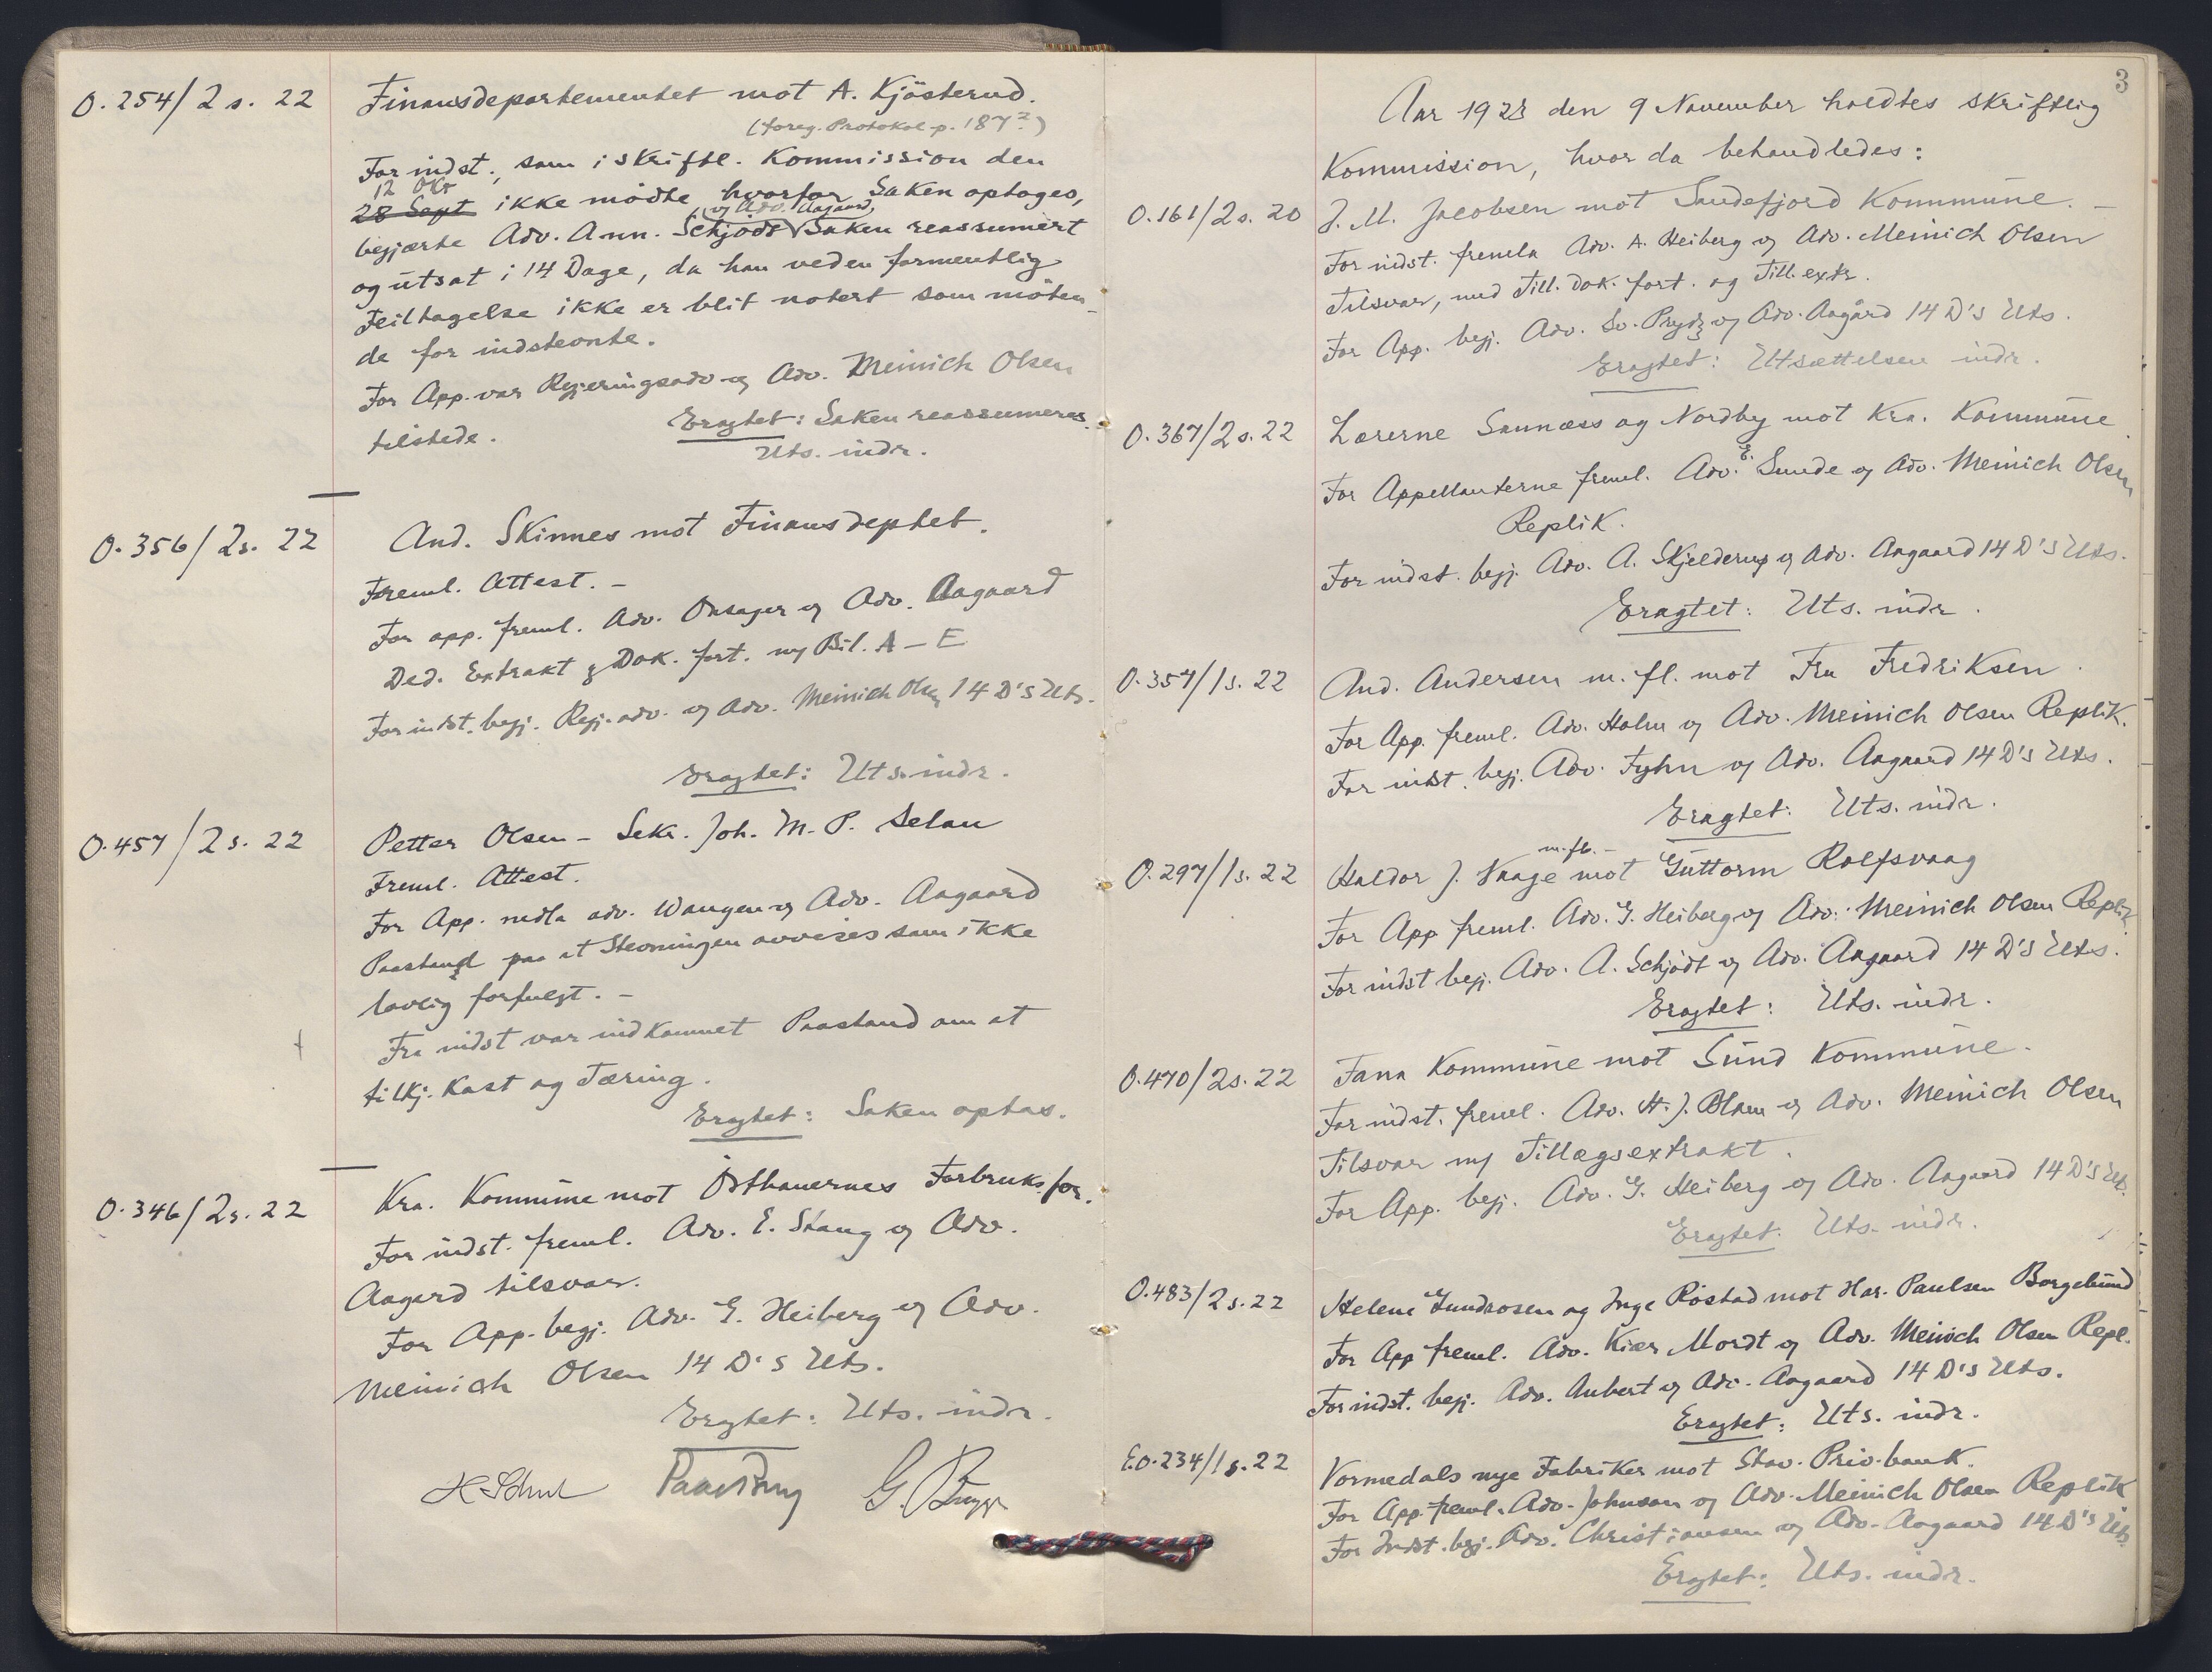 O. 254/2 s. 22
Finansdepartementet mot A. Kjösterud.
(foreg. Protokol p. 187 2)
For indst., som i skriftl. Kommission den
12 Okt
28 Sept ikke mödte hvorfor Saken optages,
og Adv. Aagaard
begjærte Adv. Ann. Schjödt Saken reassumert
og utsat i 14 Dage, da han ved en formentlig
Feiltagelse ikke er blit notert som möten-
de for indstevnte.
For App. var Regjeringsadv og Adv. Meinich Olsen
tilstede.
Eragtet: Saken reassumeres.
Uts. indr.
O. 356/2s. 22
And. Skinnes mot Finansdeptet.
Freml. Attest. –
For app. freml. Adv. Onsager og Adv. Aagaard
Ded. Extrakt & Dok. fort. m/ Bil. A – E
For indst. begj. Regj. adv. og Adv. Meinich Olsen 14 D's Uts.
Eragtet: Uts. indr.
O. 457/2 s. 22
Petter Olsen – Sekr. Joh. M. P. Selan
Freml. Attest.
For App. nedla adv. Wangen og Adv. Aagaard
Paastand paa at Stevningen avvises som ikke
lovlig forfulgt. –
Fra indst var indkommet Paastand om at
tilkj. Kost og Tæring.
Eragtet: Saken optas.
O. 346/2s. 22
Kra. Kommune mot Östkanernes Forbruksfor.
For indst. freml. Adv. E. Stang og Adv.
Aagard tilsvar.
For App. begj. Adv. G. Heiberg og Adv.
Meinich Olsen 14 D's Uts.
Eragtet: Uts. indr.
3
Aar 1923 den 9 November holdtes skriftlig
Kommission, hvor da behandledes:
O. 161/2s. 20
J. M. Jacobsen mot Sandefjord Kommune. –
For indst. fremla Adv. A. Heiberg og Adv. Meinich Olsen
Tilsvar, med Till. dok. fort. og Till. extr.
For App. begj. Adv. Sv. Prydz og Adv. Aagård 14 D's Uts.
Eragtet: Utsættelsen indr.
O. 367/2s. 22
Lærerne Sannæss og Nordby mot Kra. Kommune.
For Appellanterne freml. Adv. E. Sunde og Adv. Meinich Olsen
Replik.
For indst. begj. Adv. A. Skjelderup og Adv. Aagaard 14 D's Uts.
Eragtet: Uts. indr.
O. 354/1s. 22
And. Andersen m. fl. mot Fru Fredriksen.
For App. freml. Adv. Holm og Adv. Meinich Olsen Replik.
For indst. begj. Adv. Fyhn og Adv. Aagaard 14 D's Uts.
Eragtet: Uts. indr.
O. 297/1s. 22
m. fl. –
Haldor J. Vaage mot Guttorm Rolfsvaag
For App freml. Adv. G. Heiberg og Adv. Meinich Olsen Replik.
For indst begj. Adv. A. Schjödt og Adv. Aagaard 14 D's Uts.
Eragtet: Uts. indr.
O. 470/2s. 22
Fana Kommune mot Sund Kommune.
For indst. freml. Adv. H. J. Blom og Adv. Meinich Olsen
Tilsvar m/ Tillægsextrakt.
For App. begj. Adv. G. Heiberg og Adv. Aagaard 14 D's Uts.
Eragtet: Uts. indr.
O. 483/2s. 22
Helene Gundrosen og Inge Röstad mot Har. Paulsen Borgelund
For App freml. Adv. Kiær Mordt og Adv. Meinich Olsen Repl.
For indst. begj. Adv. Aubert og Adv. Aagaard 14 D's Uts.
Eragtet: Uts. indr.
E.O. 234/1s. 22
Vormedals nye Fabriker mot Stav. Priv. bank.
For App. freml. Adv. Johnson og Adv. Meinich Olsen Replik
For Indst. begj. Adv. Christiansen og Adv. Aagaard 14 D's Uts.
Eragtet: Uts. indr.